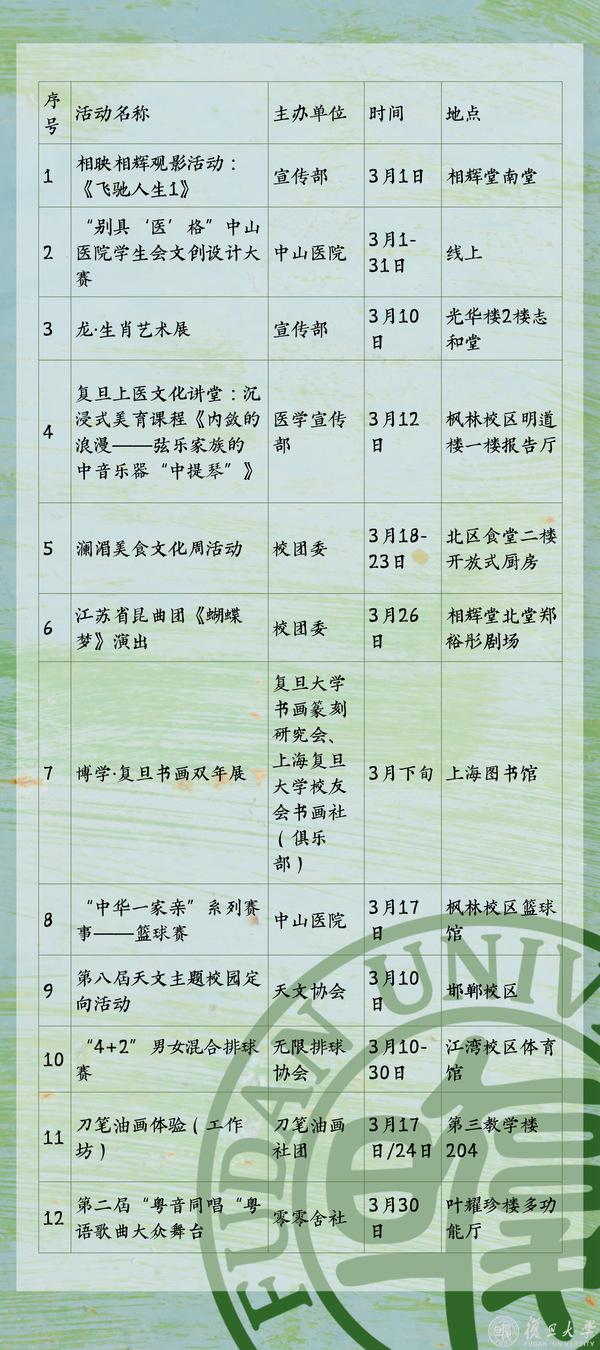 序
号
活动名称
主办单位
时间
地点
1
相映相辉观影活动：
《飞驰人生1》
宣传部
3月1日
相辉堂南堂
2
“别具‘医’格”中山
医院学生会文创设计大
赛
中山医院
3月1-
31日
线上
3
龙·生肖艺术展
宣传部
3月10
日
光华楼2楼志
和堂
4
复旦上医文化讲堂：沉
浸式美育课程《内敛的
浪漫——弦乐家族的
中音乐器“中提琴”》
医学宣传
部
3月12
日
枫林校区明道
楼一楼报告厅
5
澜湄美食文化周活动
校团委
3月18-
23日
北区食堂二楼
开放式厨房
6
江苏省昆曲团《蝴蝶
梦》演出
校团委
3月26
日
相辉堂北堂郑
裕彤剧场
7
博学·复旦书画双年展
复旦大学
书画篆刻
研究会、
上海复旦
大学校友
会书画社
（俱乐
部）
3月下旬
上海图书馆
8
“中华一家亲”系列赛
事——篮球赛
中山医院
3月17
日
枫林校区篮球
馆
9
第八届天文主题校园定
向活动
天文协会
3月10
日
邯郸校区
10
“4+2”男女混合排球
赛
无限排球
协会
3月10-
30日
江湾校区体育
馆
11
刀笔油画体验（工作
坊）
刀笔油画
社团
3月17
日/24日
第三教学楼
204
12
第二届“粤音同唱“粤
语歌曲大众舞台
零零舍社
3月30
日
叶耀珍楼多功
能厅
FUDAN UNIV
復旦大学
FUDAN UNIVERSITY